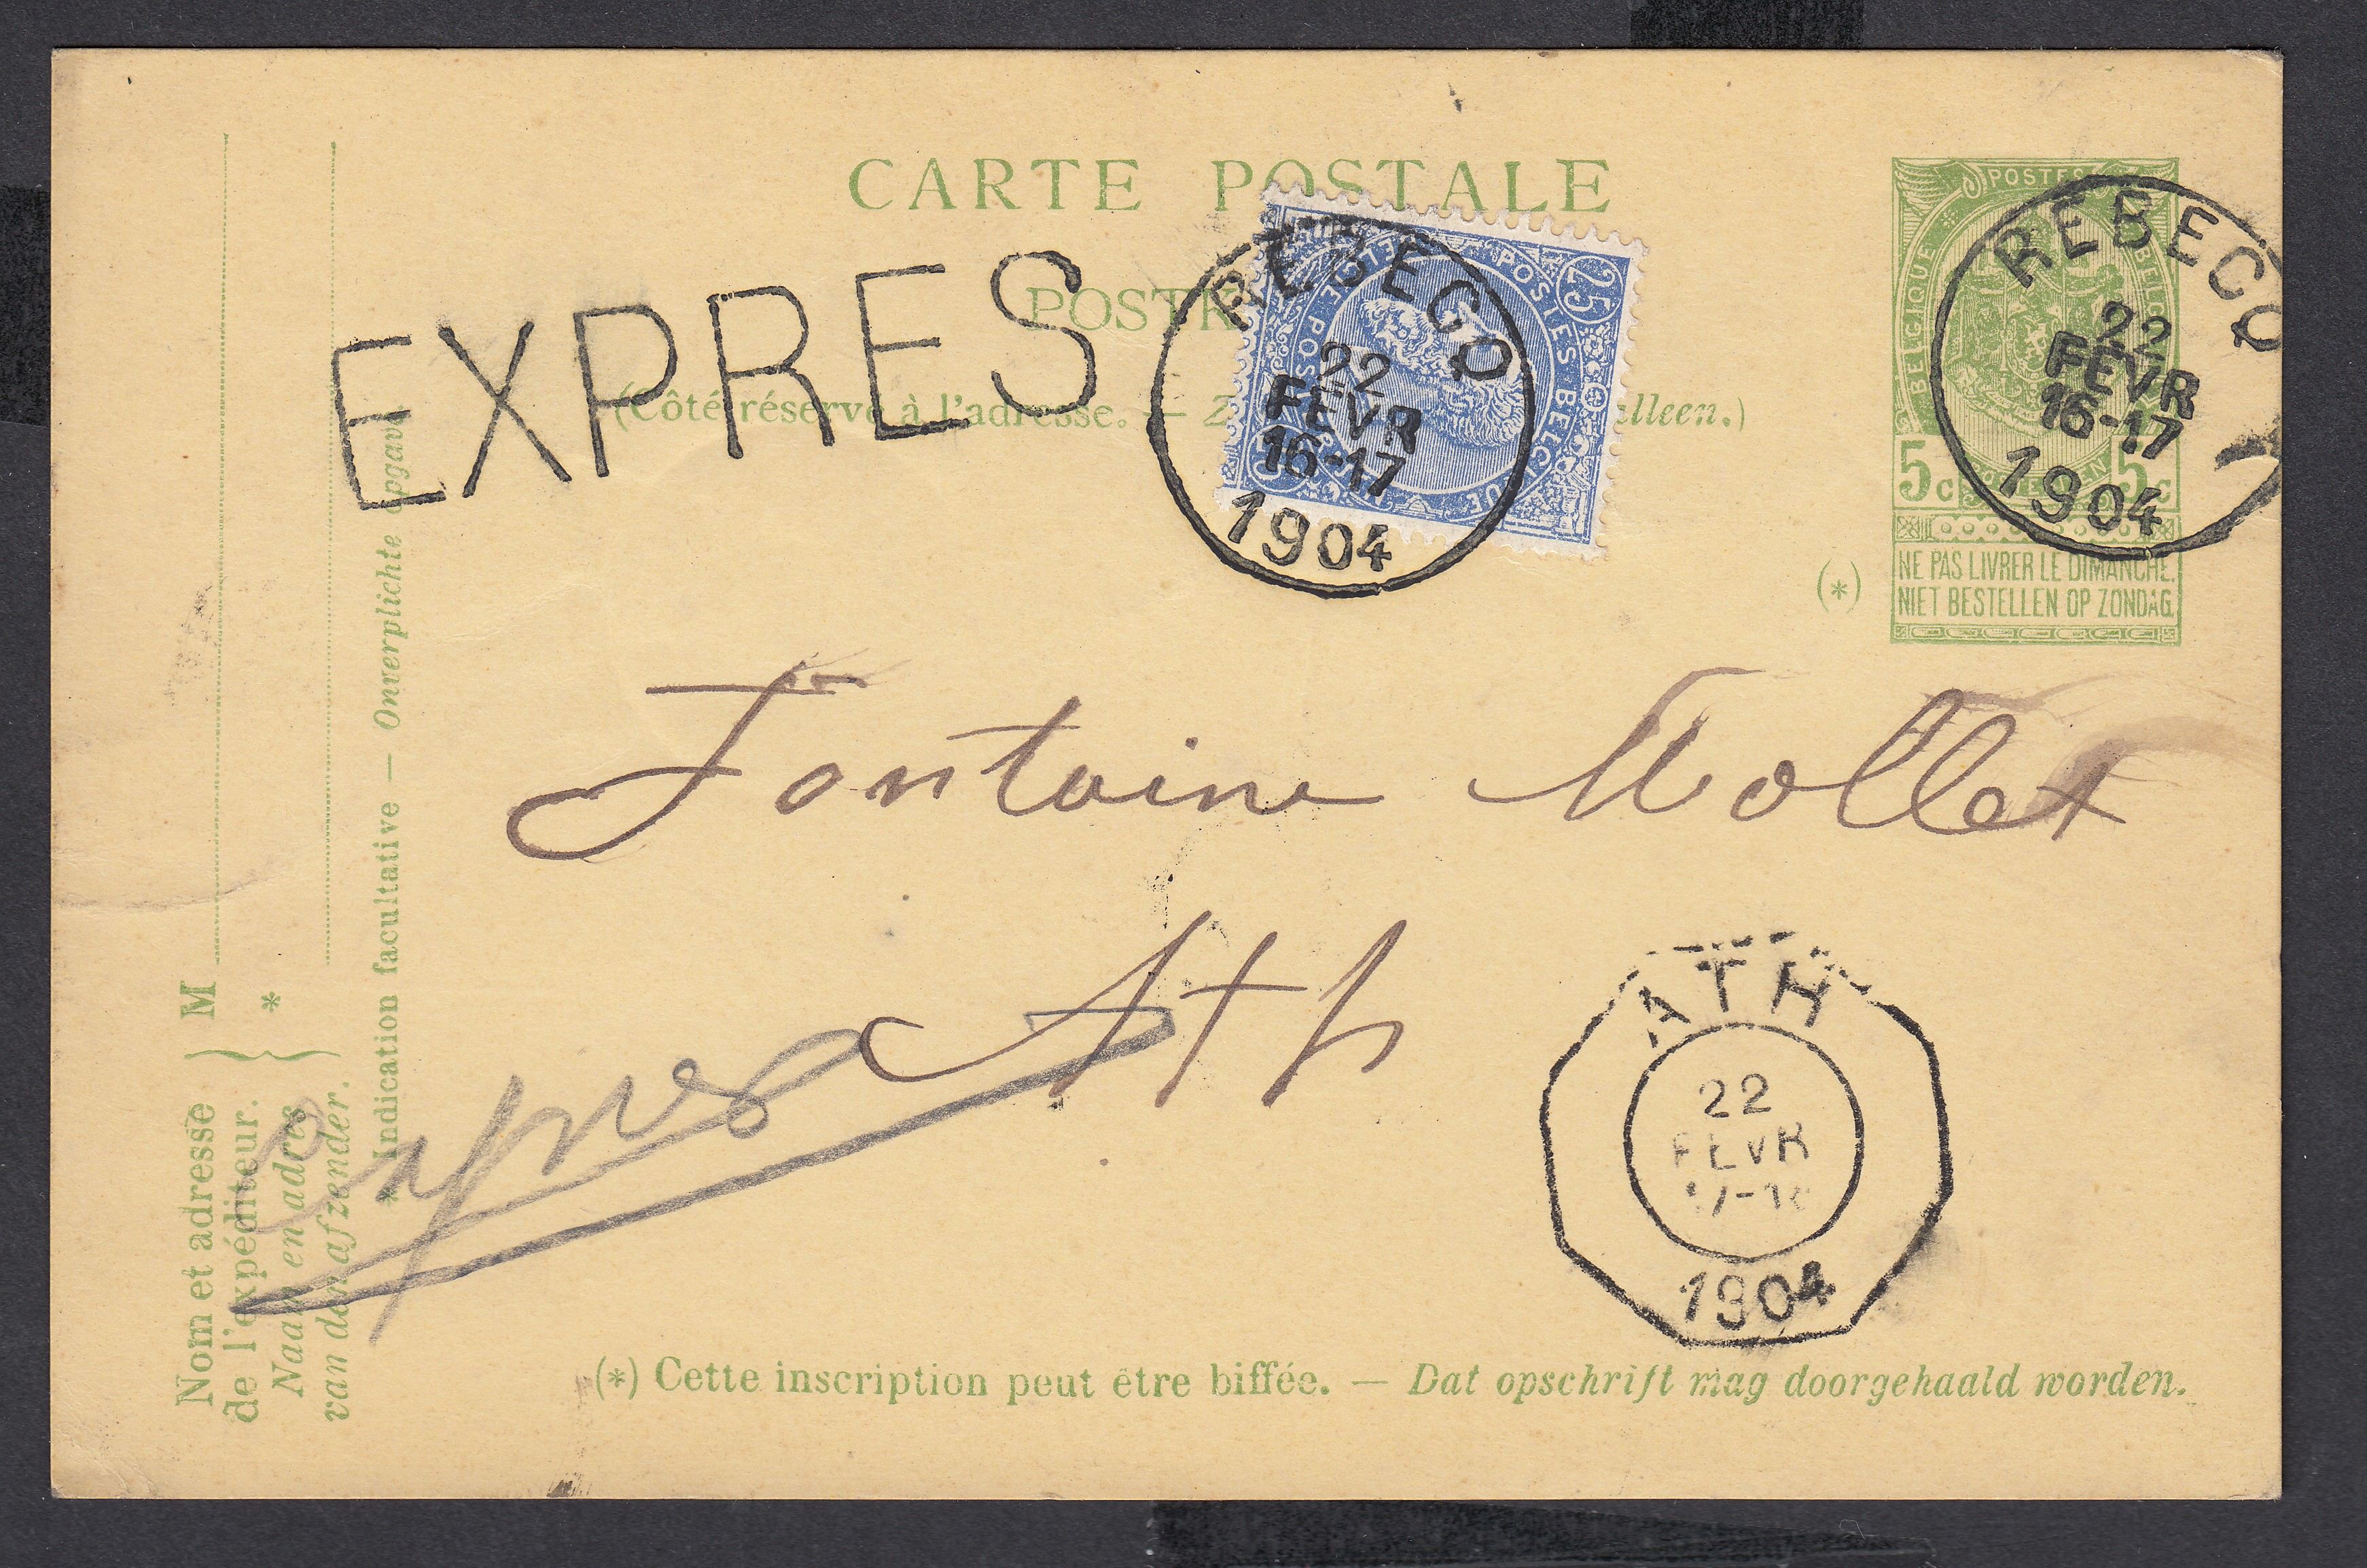 CARTE POSTALE
EXPRES
(Côté réservé à l'adresse. —
alleen.)
POSTES
25
REBECQ
22
FEVR
16-17
1904
POSTES
BELGIQUE
REBECQ
22
FEVR
16-17
1904
5 c 5 c
(*)
NE PAS LIVRER LE DIMANCHE.
NIET BESTELLEN OP ZONDAG.
Fontaine Mollet
Ath
Expres
ATH
22
FEVR
1904
Nom et adresse
de l'expéditeur. } M
Naam en adres
van den afzender. } *
* Indication facultative — Onverplichte opgave
(*) Cette inscription peut être biffée. — Dat opschrift mag doorgehaald worden.